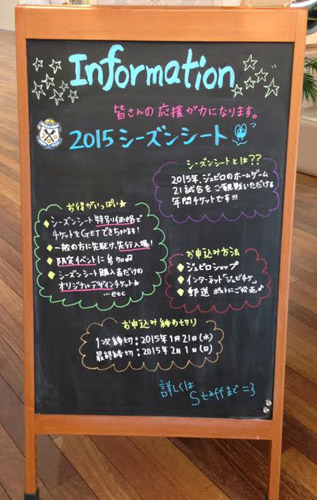 Information
皆さんの応援が力になります。
2015シーズンシート
シーズンシートとは??
2015年、ジュビロのホームゲーム
21試合をご観戦いただける
年間チケットです!!!
お得がいっぱい★
シーズンシート特別価格で
チケットをGETできちゃう!
一般の方に先駆け、先行入場!
限定イベントに参加
シーズンシート購入者だけの
オリジナルデザインチケット
...etc
お申込み方法
ジュビロショップ
インターネット「ジュビチケ」
郵送 ポストにご投函
お申込み締め切り
1次締切:2015年1月21日(水)
最終締切:2015年2月1日(日)
詳しくは
Staffまで=3